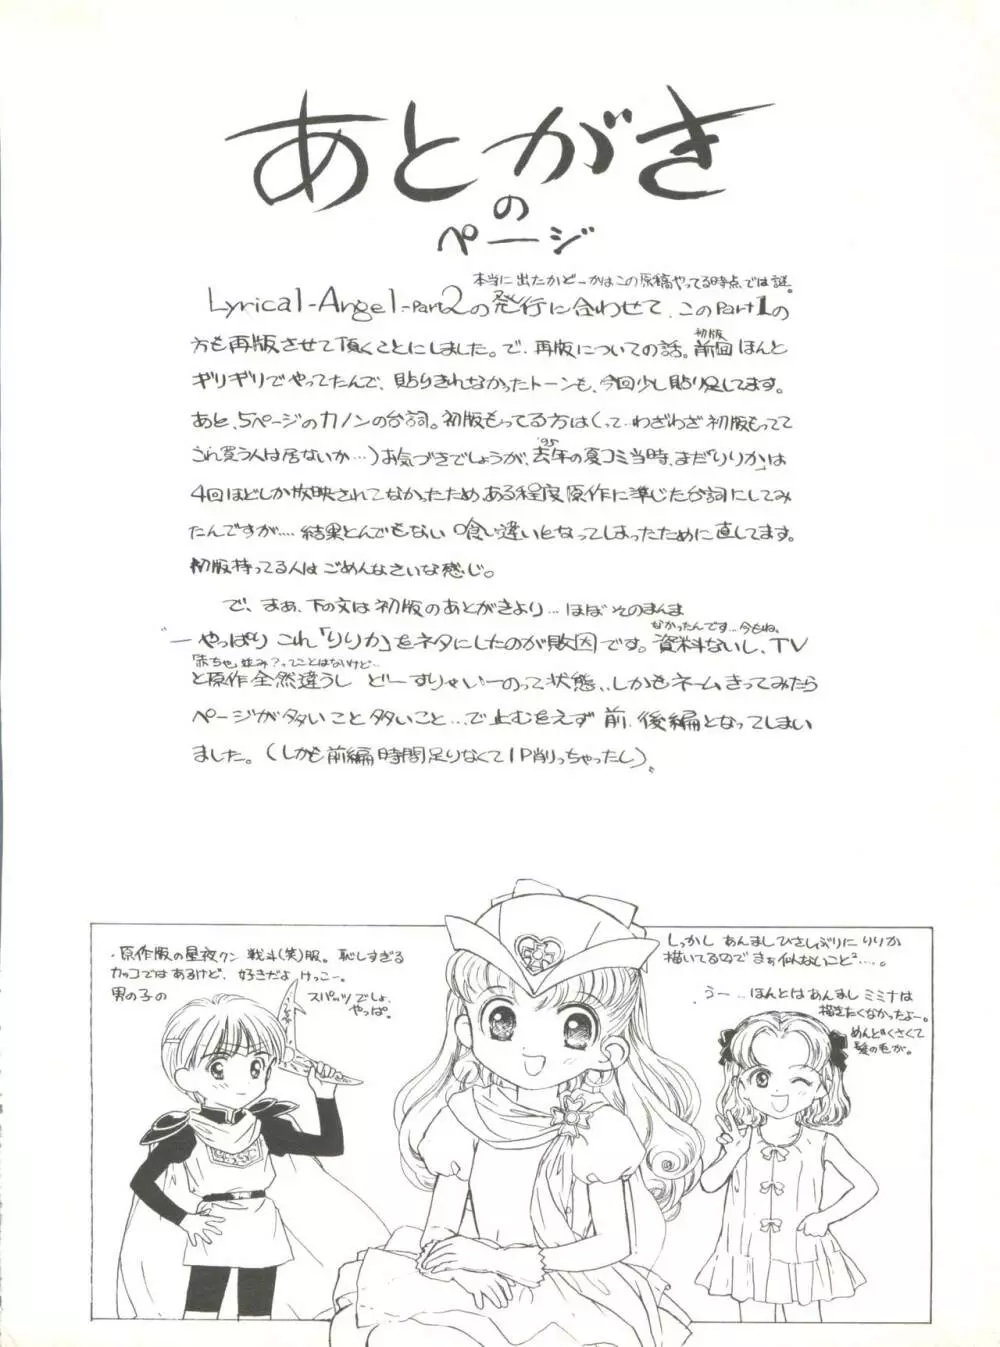 あとがき
の
ページ
本当に出たかどーかはこの原稿やってる時点では謎。
Lyrical-Angel-Part2の発行に合わせて、このPart1の
方も再版させて頂くことにしました。で、再版についての話。前回ほんと
初版
ギリギリでやってたんで、貼りきれなかったトーンも、今回少し貼り足してます。
あと、5ページのカノンの台詞。初版もってる方は(って…わざわざ初版もってて
これ買う人は居ないか…)お気づきでしょうが、去年の夏コミ当時、まだ「りりか」は
'95
4回ほどしか放映されてなかったため ある程度原作に準じた台詞にしてみ
たんですが…. 結果とんでもない 喰い違いとなってしまったために直してます。
初版持ってる人は ごめんなさいな感じ。
で、まぁ、下の文は初版のあとがきより… ほぼ そのまんま
なかったんです…今もね。
"ーやっぱり これ「りりか」をネタにしたのが敗因です。資料ないし、TV
「赤ちゃ」並み?ってことはないけど…
と原作全然違うし どーすりゃいーのって状態、しかもネームきってみたら
ページが多いこと多いこと…で止むをえず 前、後編となってしまい
ました。(しかも前編時間足りなくて1P削っちゃったし)"
・原作版の星夜クン 戦斗(笑)服。恥しすぎる
カッコではあるけど、好きだよ けっこー。
男の子の
スパッツでしょ、
やっぱ。
しっかし あんまし ひさしぶりに りりか
描いてるので まぁ似ないこと²….。
うー… ほんとは あんまし ミミナは
描きたくなかったよー。
めんどくさくて
髪の毛が。